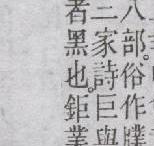 八部。俗作
三家詩巨與
者黑也。鉅業